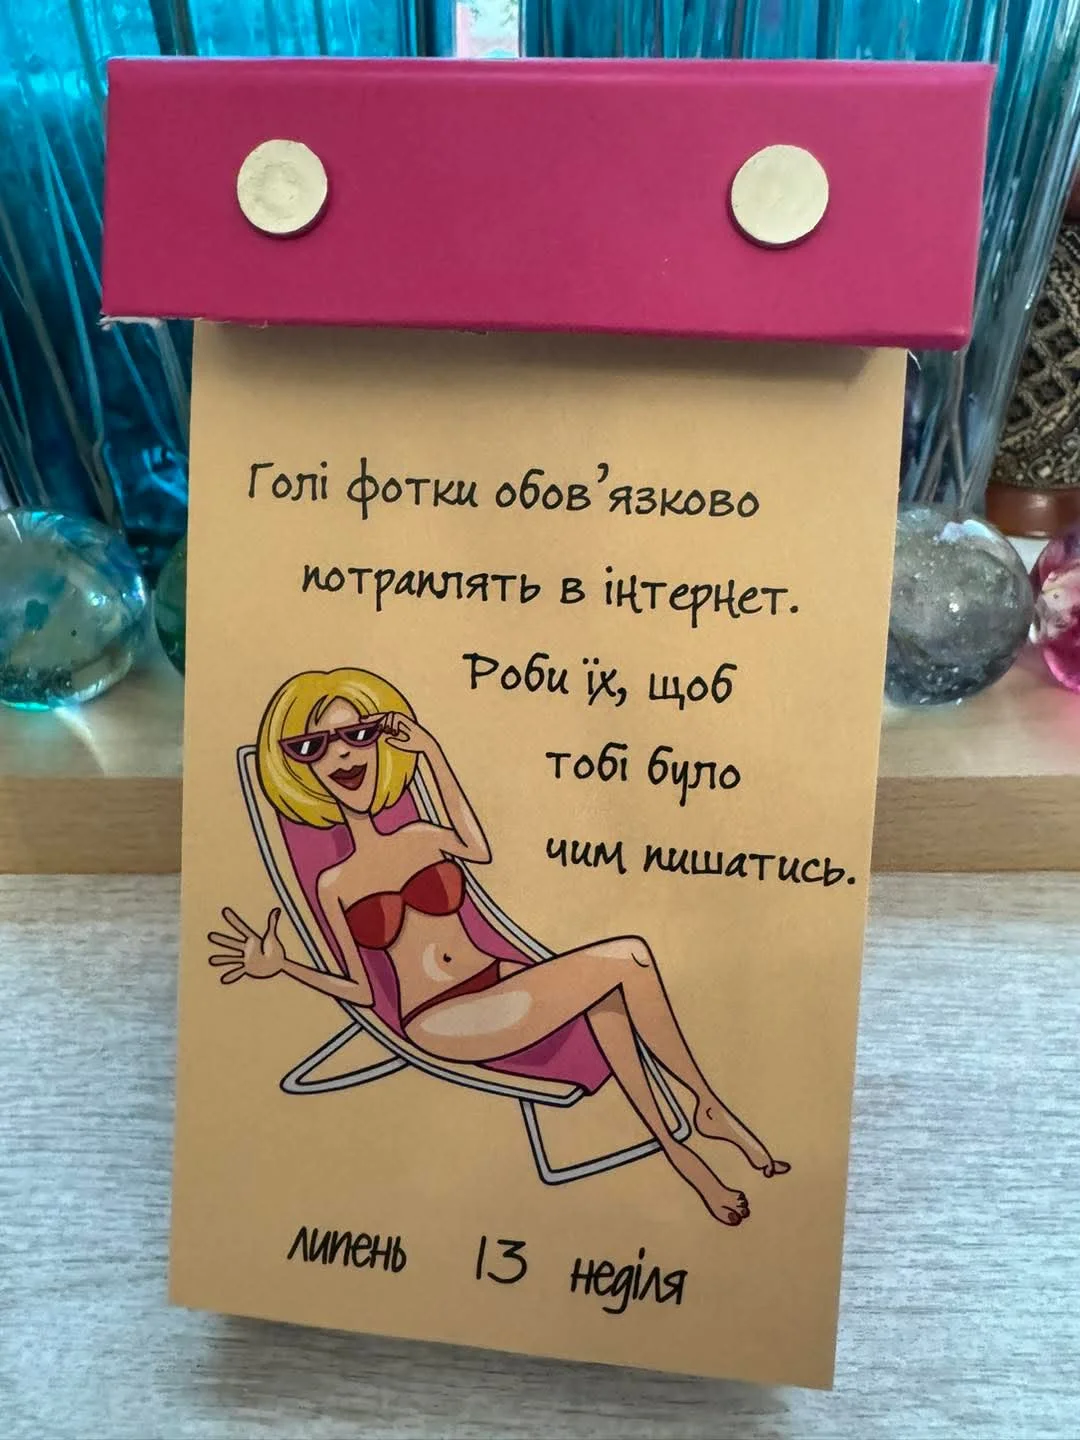 Голі фотки обов’язково
потраплять в інтернет.
Роби їх, щоб
тобі було
чим пишатись.
липень 13 неділя